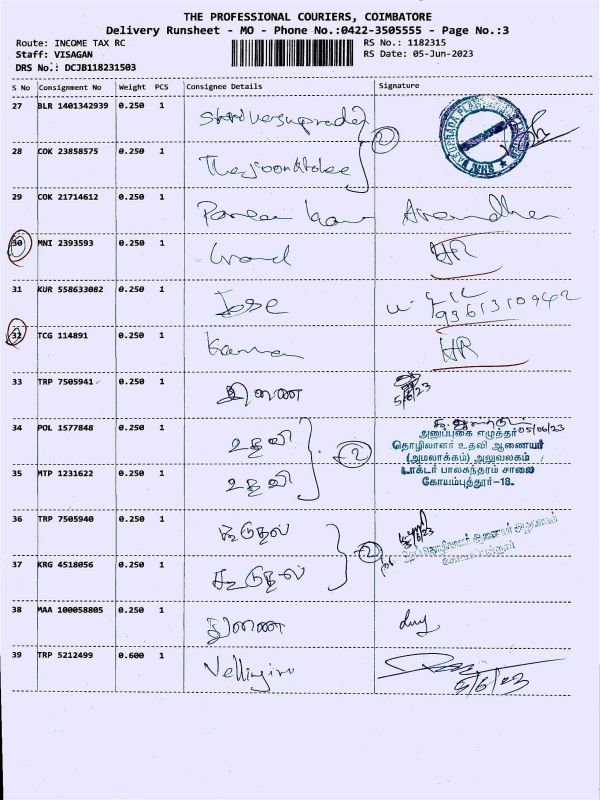 THE PROFESSIONAL COURIERS, COIMBATORE
Delivery Runsheet - MO - Phone No.:0422-3505555 - Page No.:3
Route: INCOME TAX RC
RS No.: 1182315
Staff: VISAGAN
RS Date: 05-Jun-2023
DRS No.: DCJB118231503
S No Consignment No Weight PCS Consignee Details Signature
27 BLR 1401342939 0.250 1
28 COK 23858575 0.250 1
2
29 COK 21714612 0.250 1
30 MNI 2393593 0.250 1 HR
31 KUR 558633082 0.250 1 Jose
32 TCG 114891 0.250 1 HR
33 TRP 7505941 0.250 1 இணை
5/6/23
34 POL 1577848 0.250 1 உதவி
05/06/23
அனுப்புகை எழுத்தர்
தொழிலாளர் உதவி ஆணையர்
(அமலாக்கம்) அலுவலகம்
டாக்டர் பாலசுந்தரம் சாலை
கோயம்புத்தூர்-18.
2
35 MTP 1231622 0.250 1 உதவி
36 TRP 7505940 0.250 1 கூடுதல்
2
37 KRG 4518056 0.250 1 கூடுதல்
38 MAA 100058805 0.250 1 இணை
39 TRP 5212499 0.600 1
5/6/23